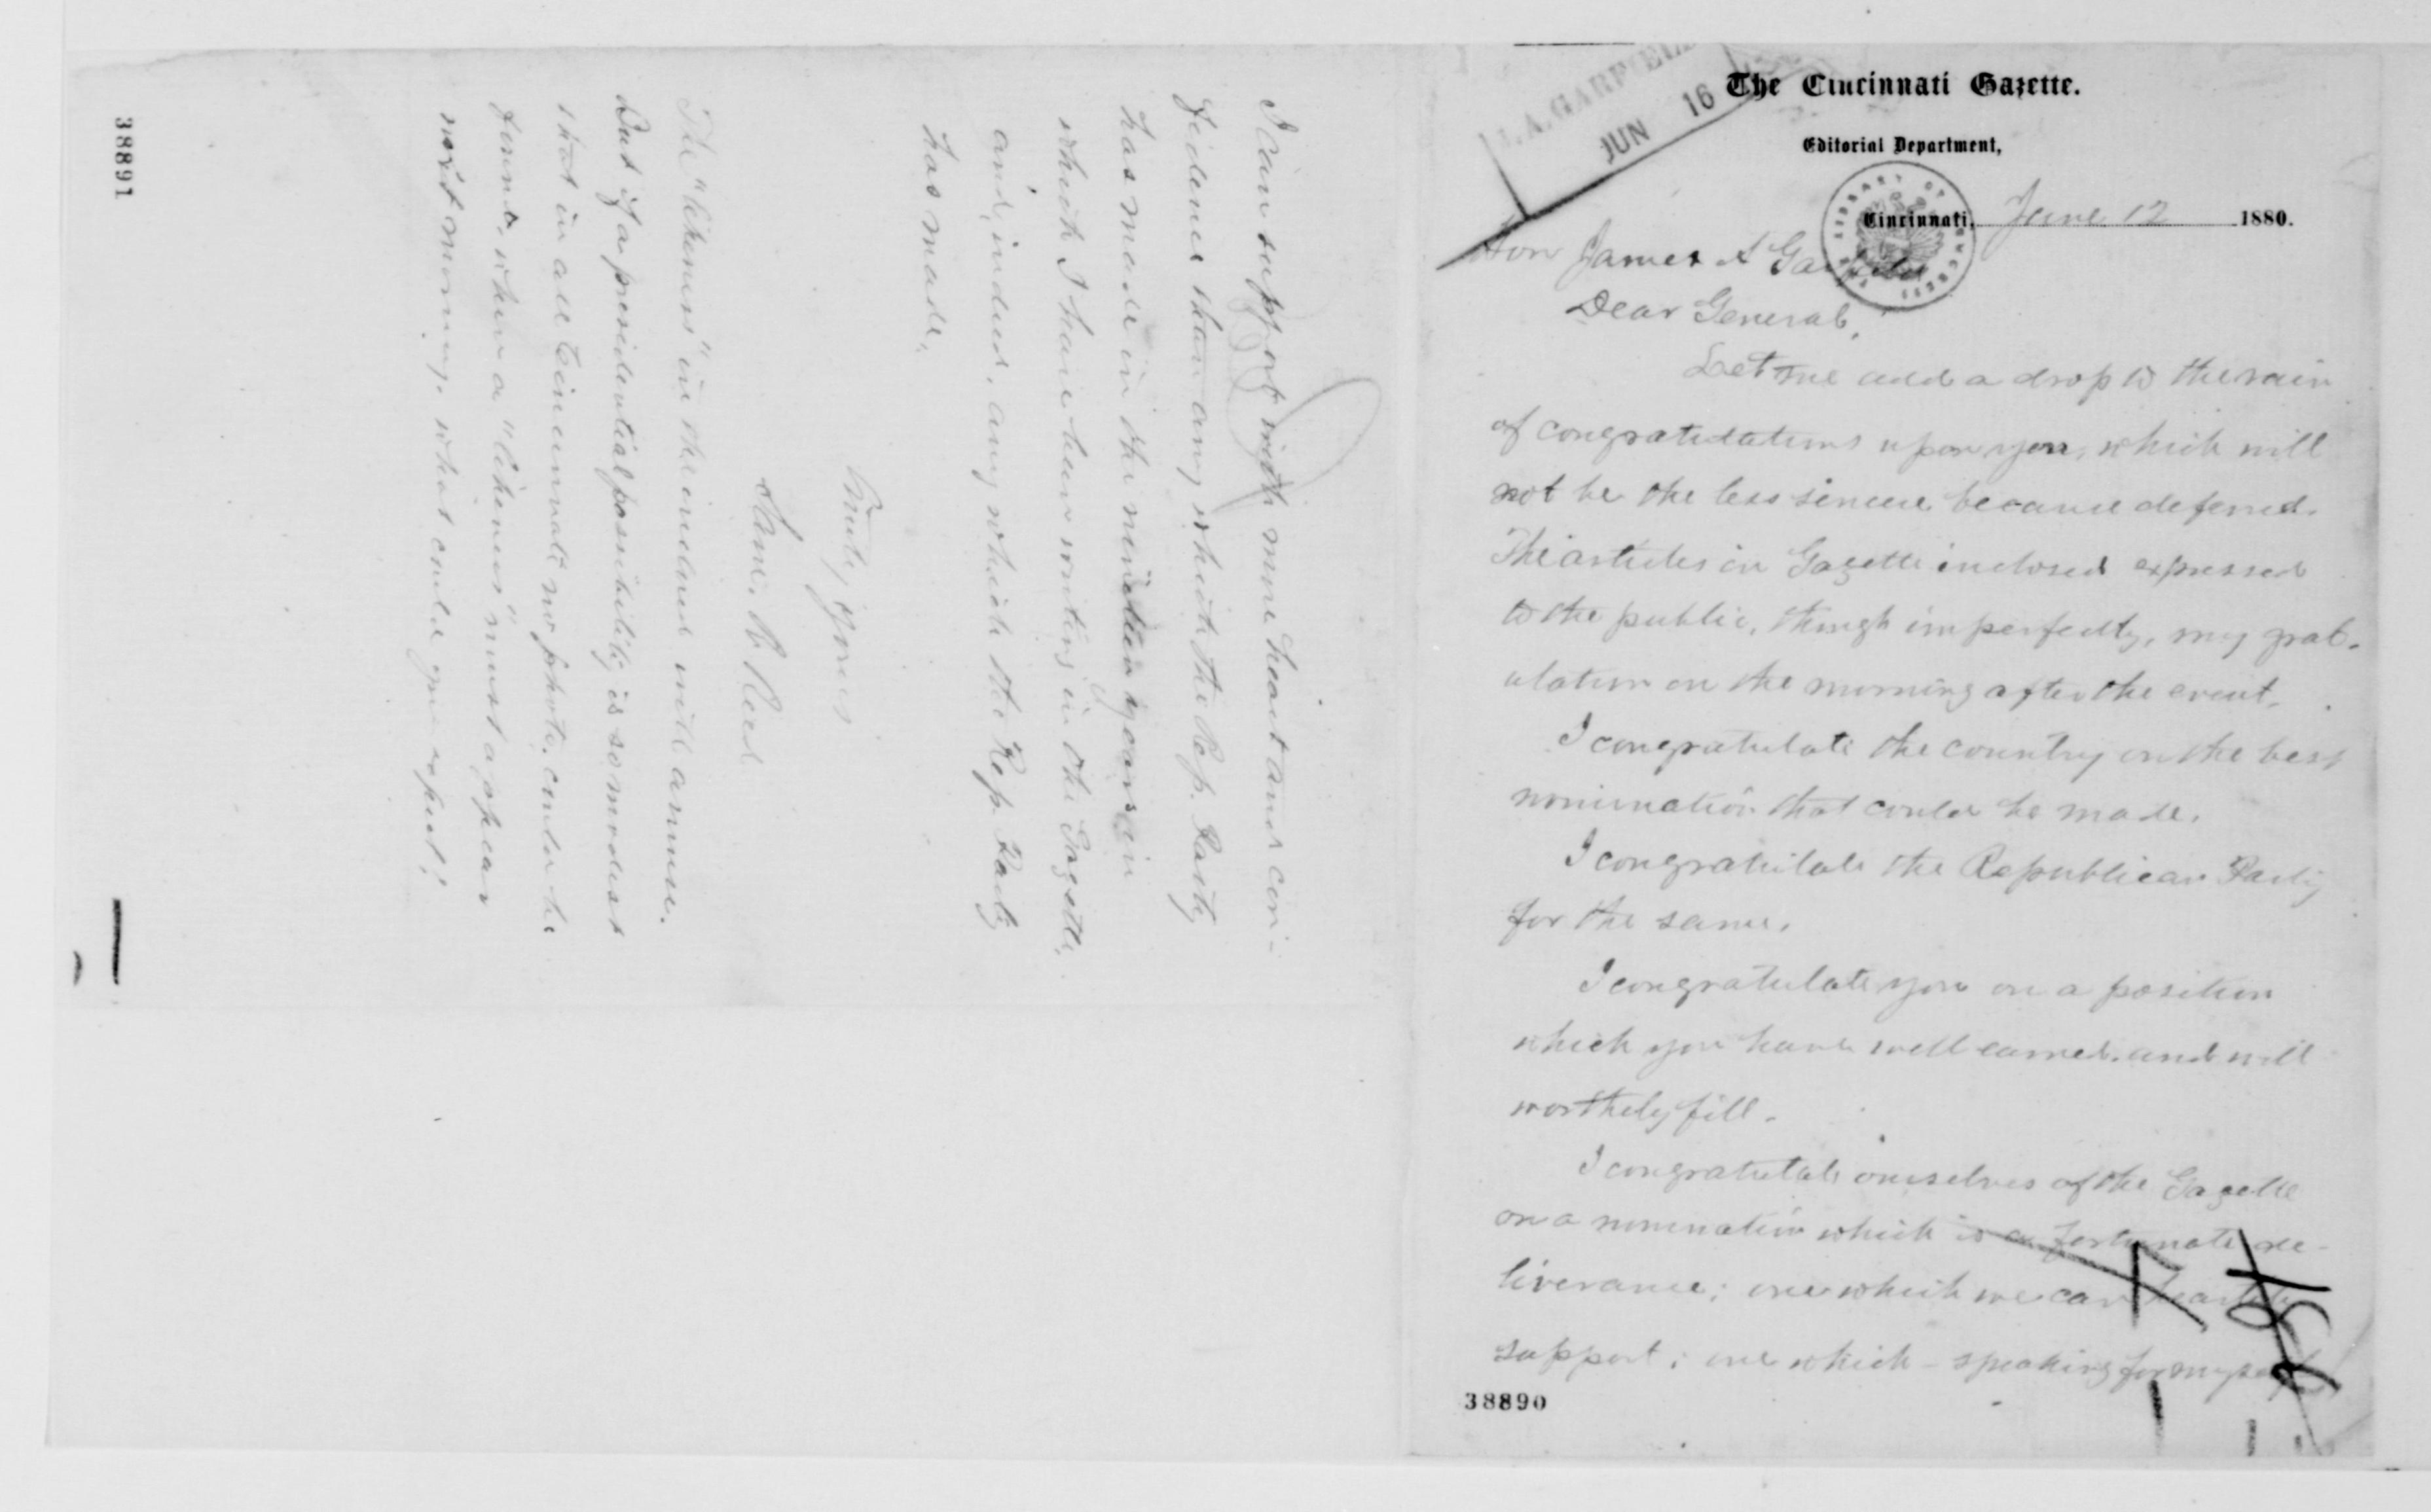 J. A. GARFIELD
JUN 16
The Cincinnati Gazette.
Editorial Department,
Cincinnati, June 12 1880.
Hon James A Garfield
Dear General,
Let me add a drop to the rain
of congratulations upon you, which will
not be the less sincere because deferred.
The articles in Gazette inclosed expressed
to the public, though imperfectly, my grat-
ulation on the morning after the event.
I congratulate the country on the best
nomination that could be made.
I congratulate the Republican Party
for the same.
I congratulate you on a position
which you have well earned and will
worthely fill.
I congratulate ourselves of the Gazette
on a nomination which is a fortunate de-
liverance; one which we can heartily
support; one which - speaking for myself
38890
I can support with more heart and con-
fidence than any which the Rep. Party
has made in the nineteen years in
which I have been writing in the Gazette,
and, indeed, any which the Rep. Party
has made.
Truly yours
Sam. R. Reed
The "likeness" in the inclosed will amuse.
But if a presidential possibility is so modest
that in all Cincinnati no photo. could be
found, when a "likeness" must appear
next morning, what could you expect!
38891